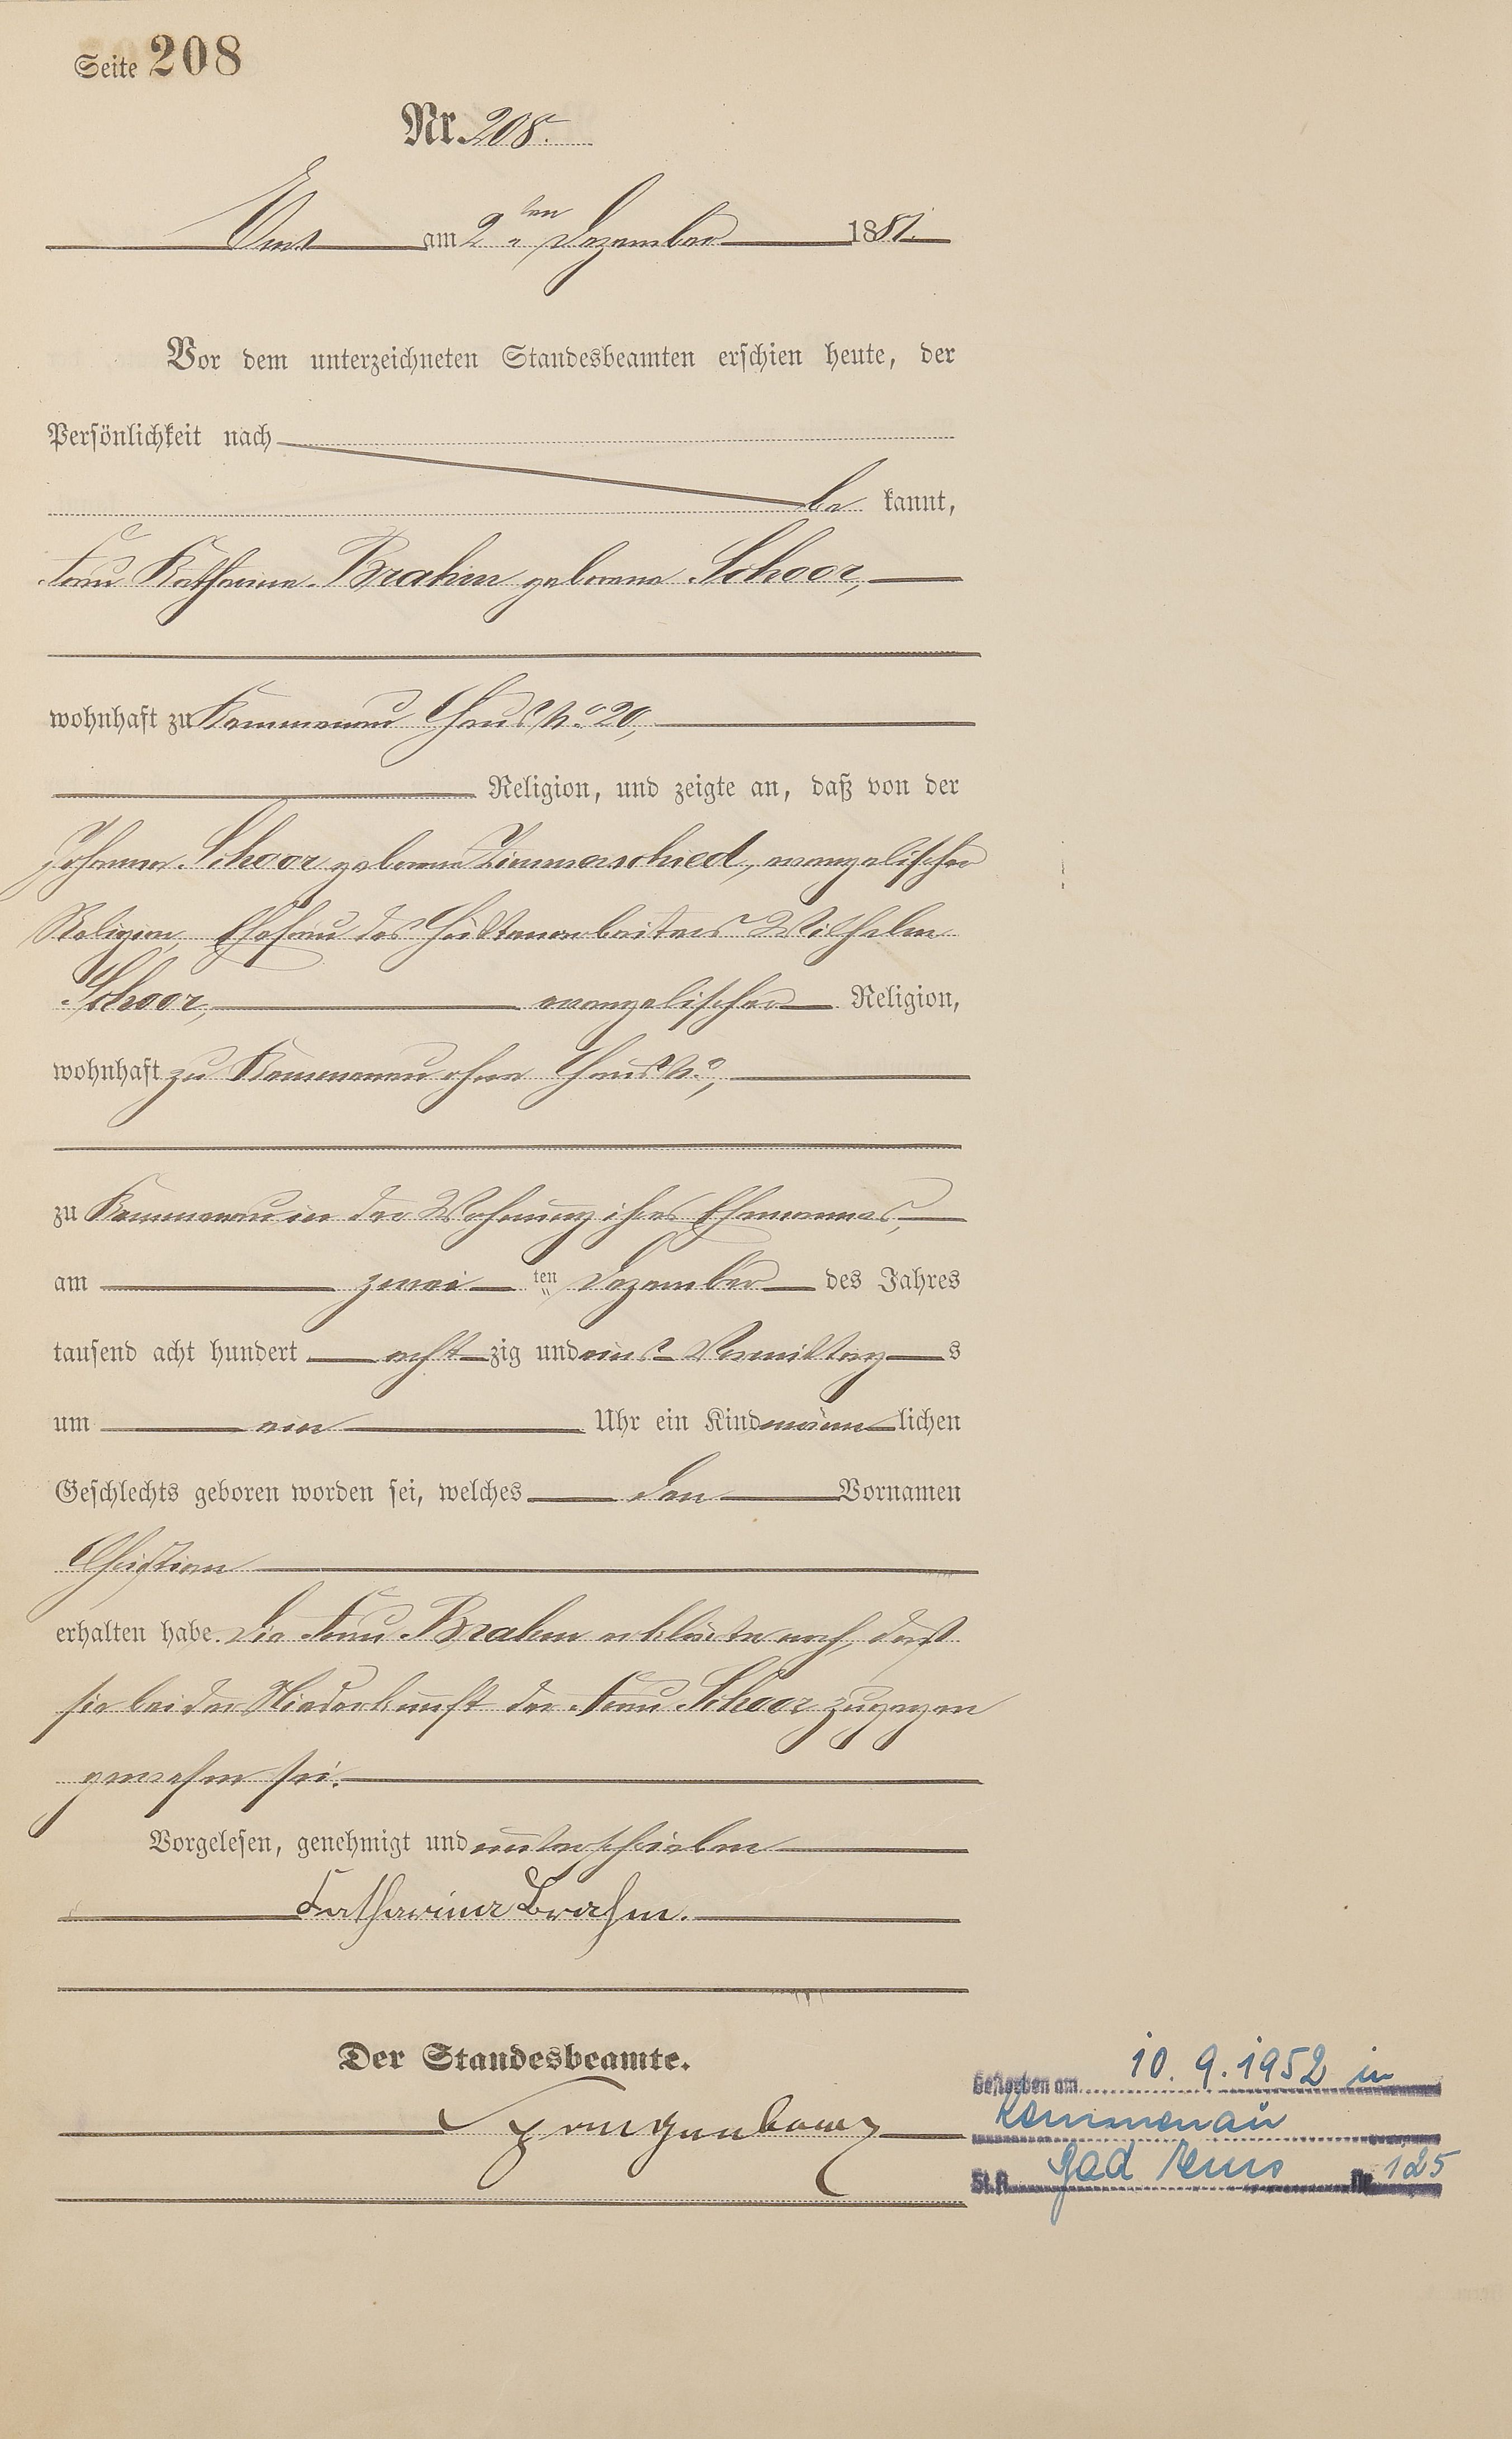 Seite 208
Nr. 208.
Ems am 2ten Dezember 1881.
Vor dem unterzeichneten Standesbeamten erschien heute, der
Persönlichkeit nach
be kannt,
Frau Katharina Brahm geborene Schoor,
wohnhaft zu Kemmenau Haus No 20,
Religion, und zeigte an, daß von der
Johanna Schoor geborene Zimmerschied, evangelischer
Religion, Ehefrau des Hüttenarbeiters Wilhelm
Schoor, evangelischer Religion,
wohnhaft zu Kemmenau ohne Haus No,
zu Kemmenau in der Wohnung ihres Ehemannes,
am zwei ten Dezember des Jahres
tausend acht hundert acht zig und eins Vormittag s
um ein Uhr ein Kind männ lichen
Geschlechts geboren worden sei, welches den Vornamen
Christian
erhalten habe. Die Frau Brahm erklärte noch, daß
sie bei der Niederkunft der Frau Schoor zugegen
gewesen sei.
Vorgelesen, genehmigt und unterschrieben
Katharina Brahm.
Der Standesbeamte.
Gestorben am 10.9.1952 in
Kemmenau
St.A. Bad Ems Nr. 125